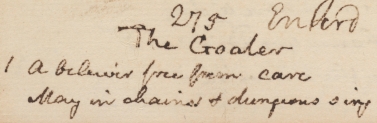 275 Enterd
The Goaler
1 A beleiver free from care
May in chains & dungeons sing